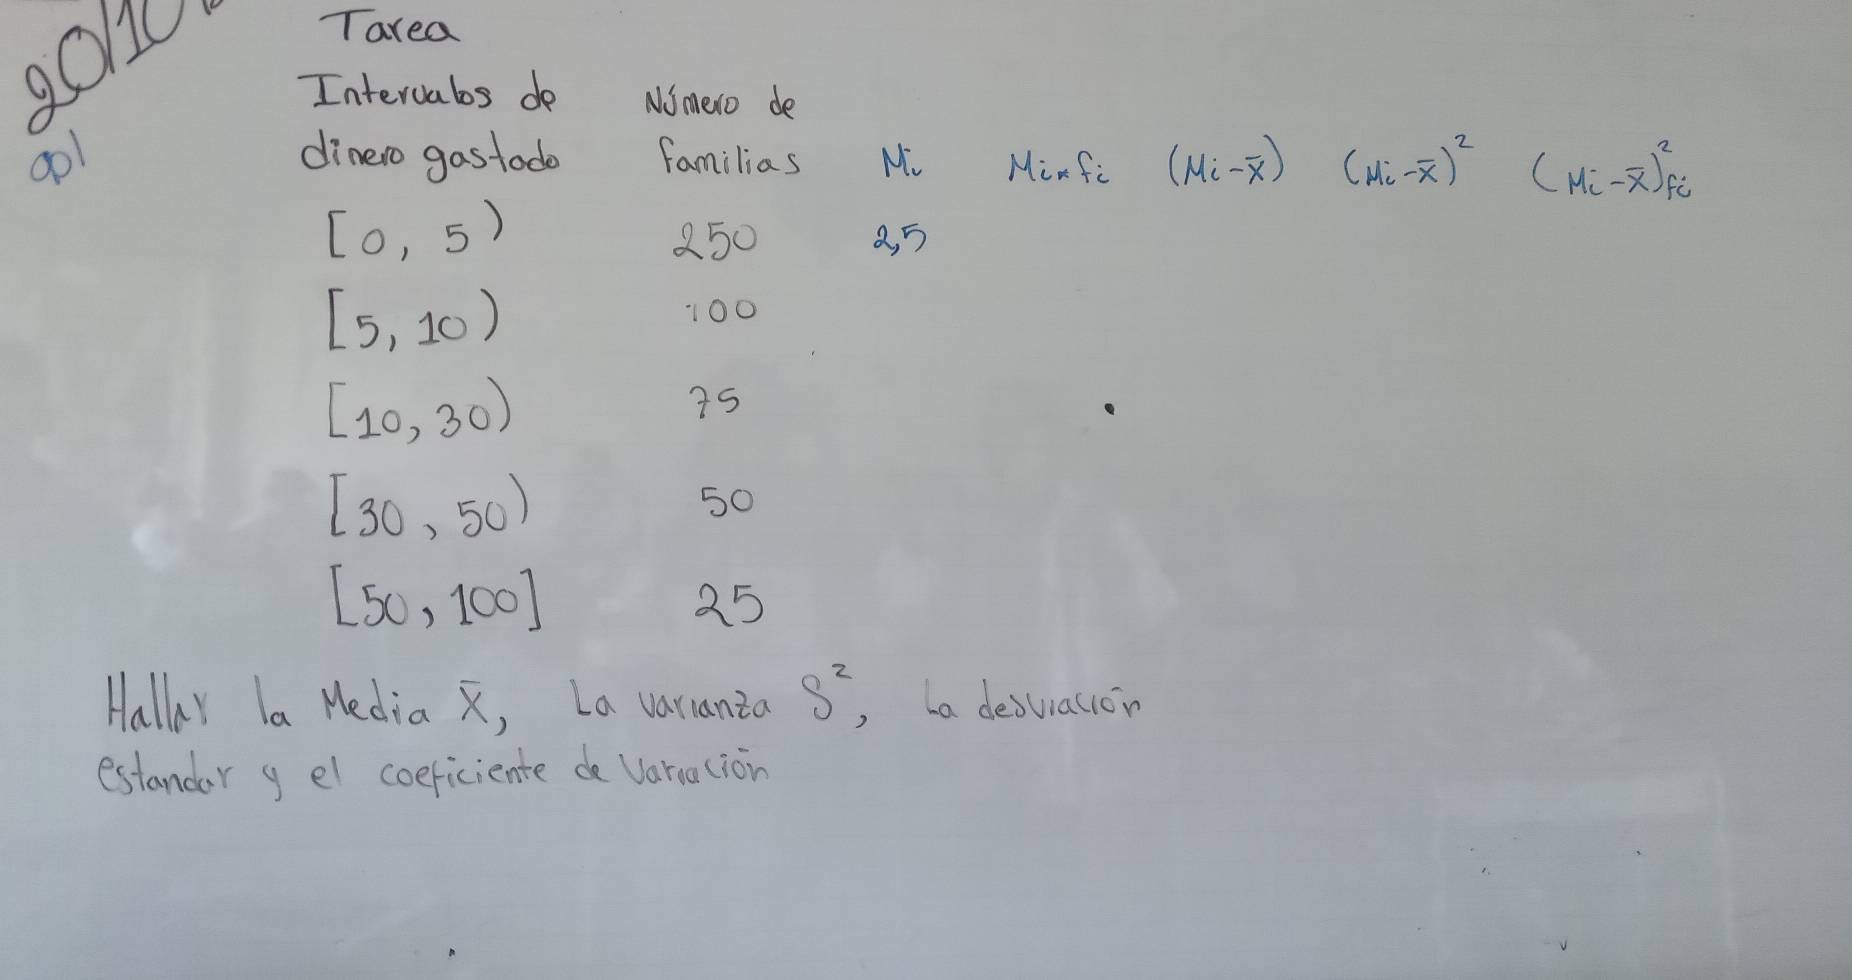 20/10
Tarea
Intervalos de Número de
dinero gastado familias Mi Mi×fi (Mi-x̄) (Mi-x̄)² (Mi-x̄)²fi
[0, 5) 250 2,5
[5, 10) 100
[10, 30) 75
[30, 50) 50
[50, 100] 25
Hallar la Media x̄, La varianza S², La desviación
estandar y el coeficiente de Variación